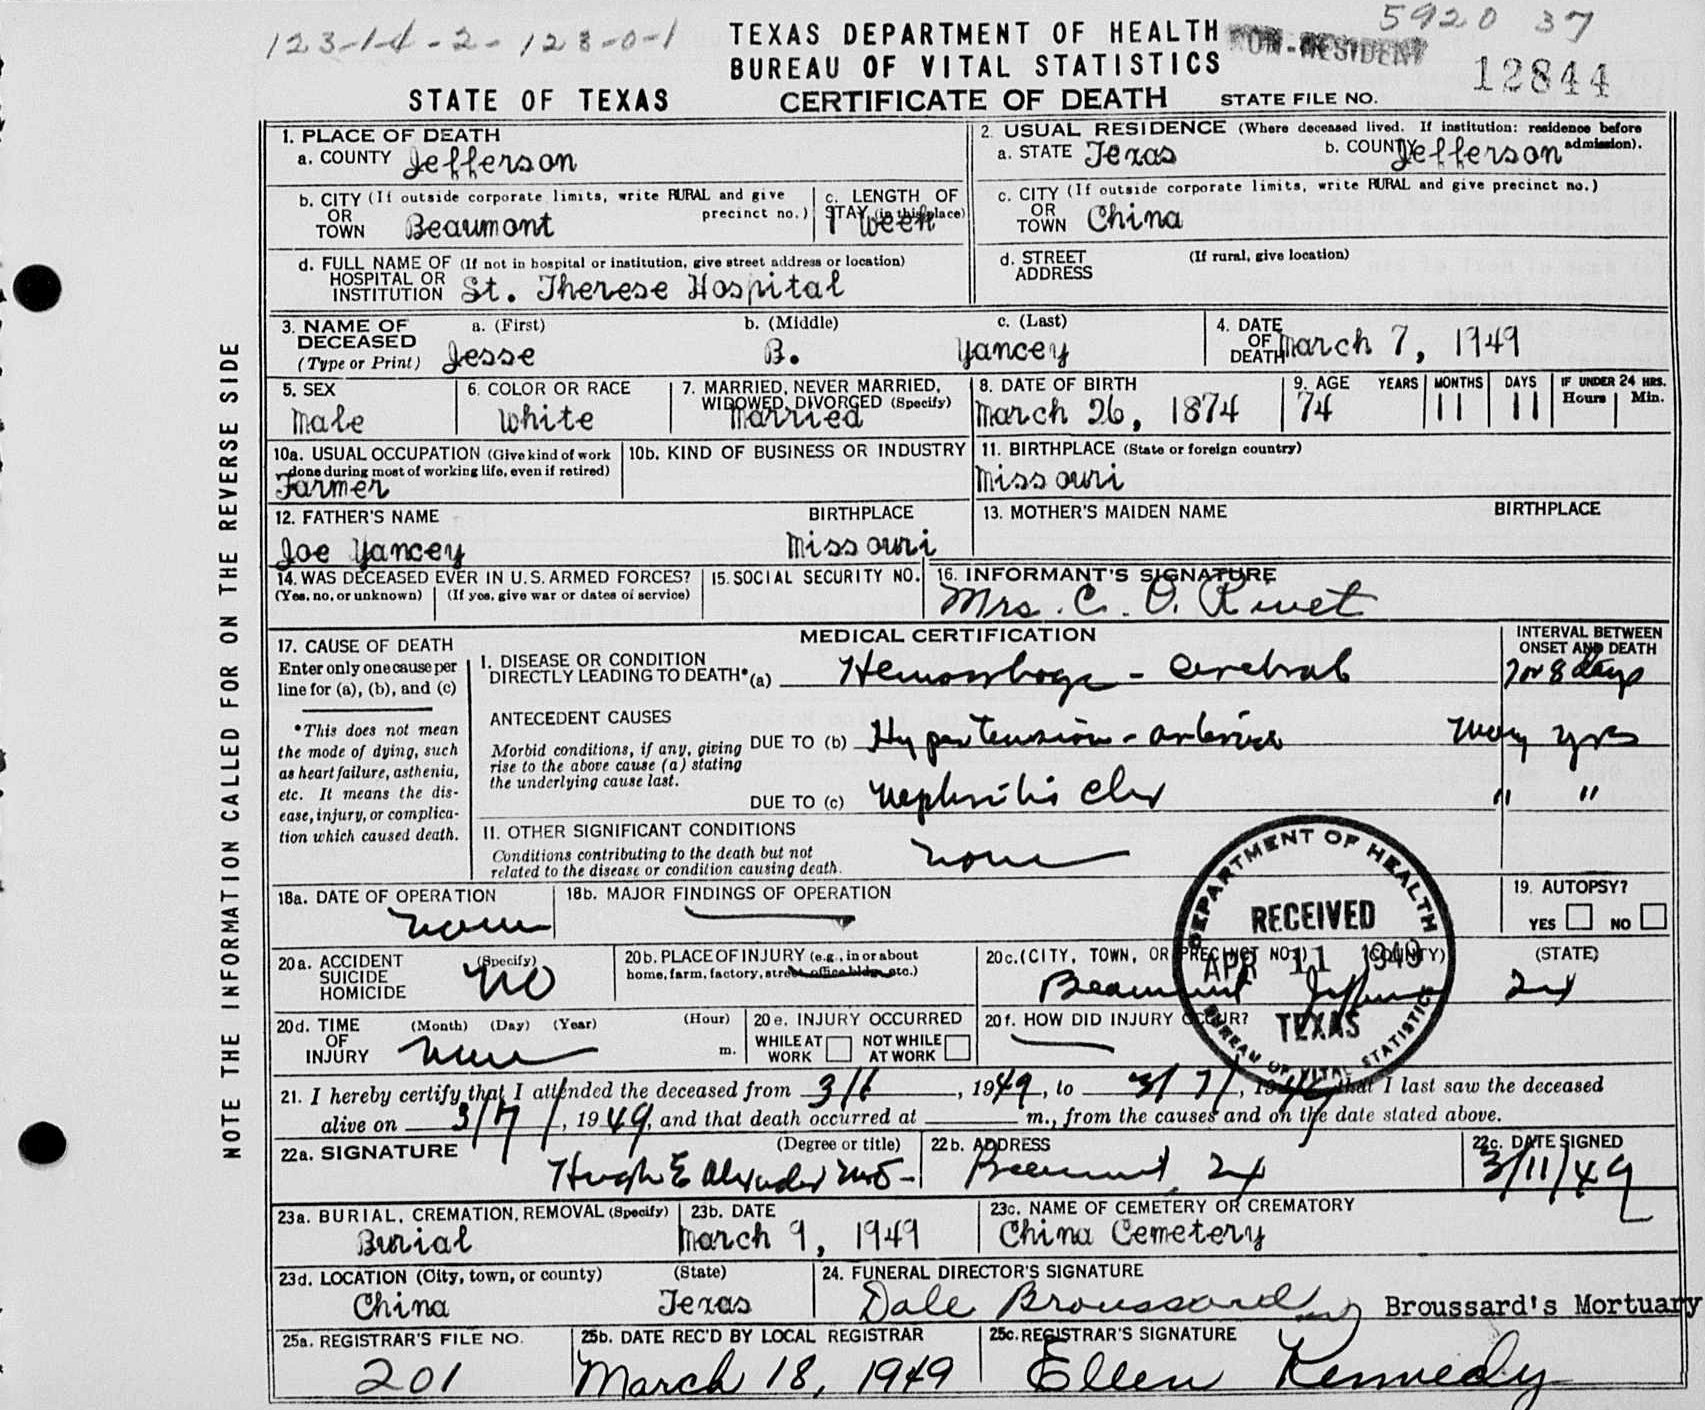 123-14-2-128-0-1
5920 37
TEXAS DEPARTMENT OF HEALTH
NON-RESIDENT
BUREAU OF VITAL STATISTICS
12844
STATE OF TEXAS CERTIFICATE OF DEATH STATE FILE NO.
1. PLACE OF DEATH
a. COUNTY Jefferson
2. USUAL RESIDENCE (Where deceased lived. If institution: residence before admission).
a. STATE Texas b. COUNTY Jefferson
b. CITY (If outside corporate limits, write RURAL and give precinct no.)
OR
TOWN Beaumont
c. LENGTH OF
STAY (in this place)
1 Week
c. CITY (If outside corporate limits, write RURAL and give precinct no.)
OR
TOWN China
d. FULL NAME OF (If not in hospital or institution, give street address or location)
HOSPITAL OR
INSTITUTION St. Therese Hospital
d. STREET (If rural, give location)
ADDRESS
3. NAME OF a. (First) b. (Middle) c. (Last)
DECEASED
(Type or Print) Jesse B. Yancey
4. DATE
OF
DEATH March 7, 1949
5. SEX
Male
6. COLOR OR RACE
White
7. MARRIED, NEVER MARRIED,
WIDOWED, DIVORCED (Specify)
Married
8. DATE OF BIRTH
March 26, 1874
9. AGE YEARS MONTHS DAYS IF UNDER 24 HRS.
Hours Min.
74 11 11
10a. USUAL OCCUPATION (Give kind of work
done during most of working life, even if retired)
Farmer
10b. KIND OF BUSINESS OR INDUSTRY
11. BIRTHPLACE (State or foreign country)
Missouri
12. FATHER'S NAME BIRTHPLACE
Joe Yancey Missouri
13. MOTHER'S MAIDEN NAME BIRTHPLACE
14. WAS DECEASED EVER IN U.S. ARMED FORCES?
(Yes, no, or unknown) (If yes, give war or dates of service)
15. SOCIAL SECURITY NO.
16. INFORMANT'S SIGNATURE
Mrs. C. O. Rivet
17. CAUSE OF DEATH
Enter only one cause per
line for (a), (b), and (c)
*This does not mean
the mode of dying, such
as heart failure, asthenia,
etc. It means the dis-
ease, injury, or complica-
tion which caused death.
MEDICAL CERTIFICATION
INTERVAL BETWEEN
ONSET AND DEATH
I. DISEASE OR CONDITION
DIRECTLY LEADING TO DEATH* (a) Hemorrhage - cerebral 7 or 8 days
ANTECEDENT CAUSES
Morbid conditions, if any, giving
rise to the above cause (a) stating
the underlying cause last.
DUE TO (b) Hypertension - Many yrs
DUE TO (c) Nephritis " "
II. OTHER SIGNIFICANT CONDITIONS
Conditions contributing to the death but not
related to the disease or condition causing death.
None
18a. DATE OF OPERATION
None
18b. MAJOR FINDINGS OF OPERATION
19. AUTOPSY?
YES NO
20a. ACCIDENT (Specify)
SUICIDE
HOMICIDE
NO
20b. PLACE OF INJURY (e.g., in or about
home, farm, factory, street, office bldg., etc.)
20c. (CITY, TOWN, OR PRECINCT NO.) (COUNTY) (STATE)
Beaumont Jefferson Tex
20d. TIME (Month) (Day) (Year) (Hour)
OF
INJURY m.
None
20e. INJURY OCCURRED
WHILE AT
WORK
NOT WHILE
AT WORK
20f. HOW DID INJURY OCCUR?
DEPARTMENT OF HEALTH
RECEIVED
APR 11 1949
TEXAS
BUREAU OF VITAL STATISTICS
21. I hereby certify that I attended the deceased from 3/1, 1949, to 3/7/, 1949, that I last saw the deceased
alive on 3/7/, 1949, and that death occurred at m., from the causes and on the date stated above.
22a. SIGNATURE (Degree or title)
Hugh E Alexander MD
22b. ADDRESS
Beaumont, Tex
22c. DATE SIGNED
3/11/49
23a. BURIAL, CREMATION, REMOVAL (Specify)
Burial
23b. DATE
March 9, 1949
23c. NAME OF CEMETERY OR CREMATORY
China Cemetery
23d. LOCATION (City, town, or county) (State)
China Texas
24. FUNERAL DIRECTOR'S SIGNATURE
Dale Broussard Broussard's Mortuary
25a. REGISTRAR'S FILE NO.
201
25b. DATE REC'D BY LOCAL REGISTRAR
March 18, 1949
25c. REGISTRAR'S SIGNATURE
Ellen Kennedy
NOTE THE INFORMATION CALLED FOR ON THE REVERSE SIDE